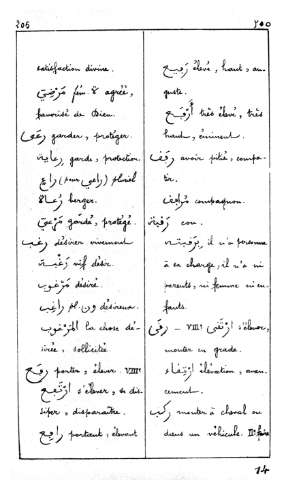 206
satisfaction divine.
مَرْضِيّ fém. ة agréé,
favorisé de Dieu.
رعى garder, protéger.
رعاية garde, protection.
راعٍ (pour راعي) pluriel
رعاة berger.
مَرْعِيّ gardé, protégé.
رغب désirer vivement
رَغْبَة vif désir.
مَرْغوب désiré.
راغِب pl. ون désireux.
المَرْغوب la chose dé-
sirée, sollicitée
رفع porter, élever. VIIIe
ارْتَفَع s'élever, se dis-
siper, disparaître.
رافِع portant, élevant
٢٠٥
رَفيع élevé, haut, au-
guste.
أَرْفَع très élevé, très
haut, éminent.
رفق avoir pitié, compa-
tir.
مُرافِق compagnon.
رَقَبة cou.
بِرَقَبته, il n'a personne
à sa charge, il n'a ni
parents, ni femme ni en-
fants.
رقى – VIIIe ارْتَقى s'élever,
monter en grade.
ارْتِقاء élévation, avan-
cement.
ركب monter à cheval ou
dans un véhicule. IIe faire
14